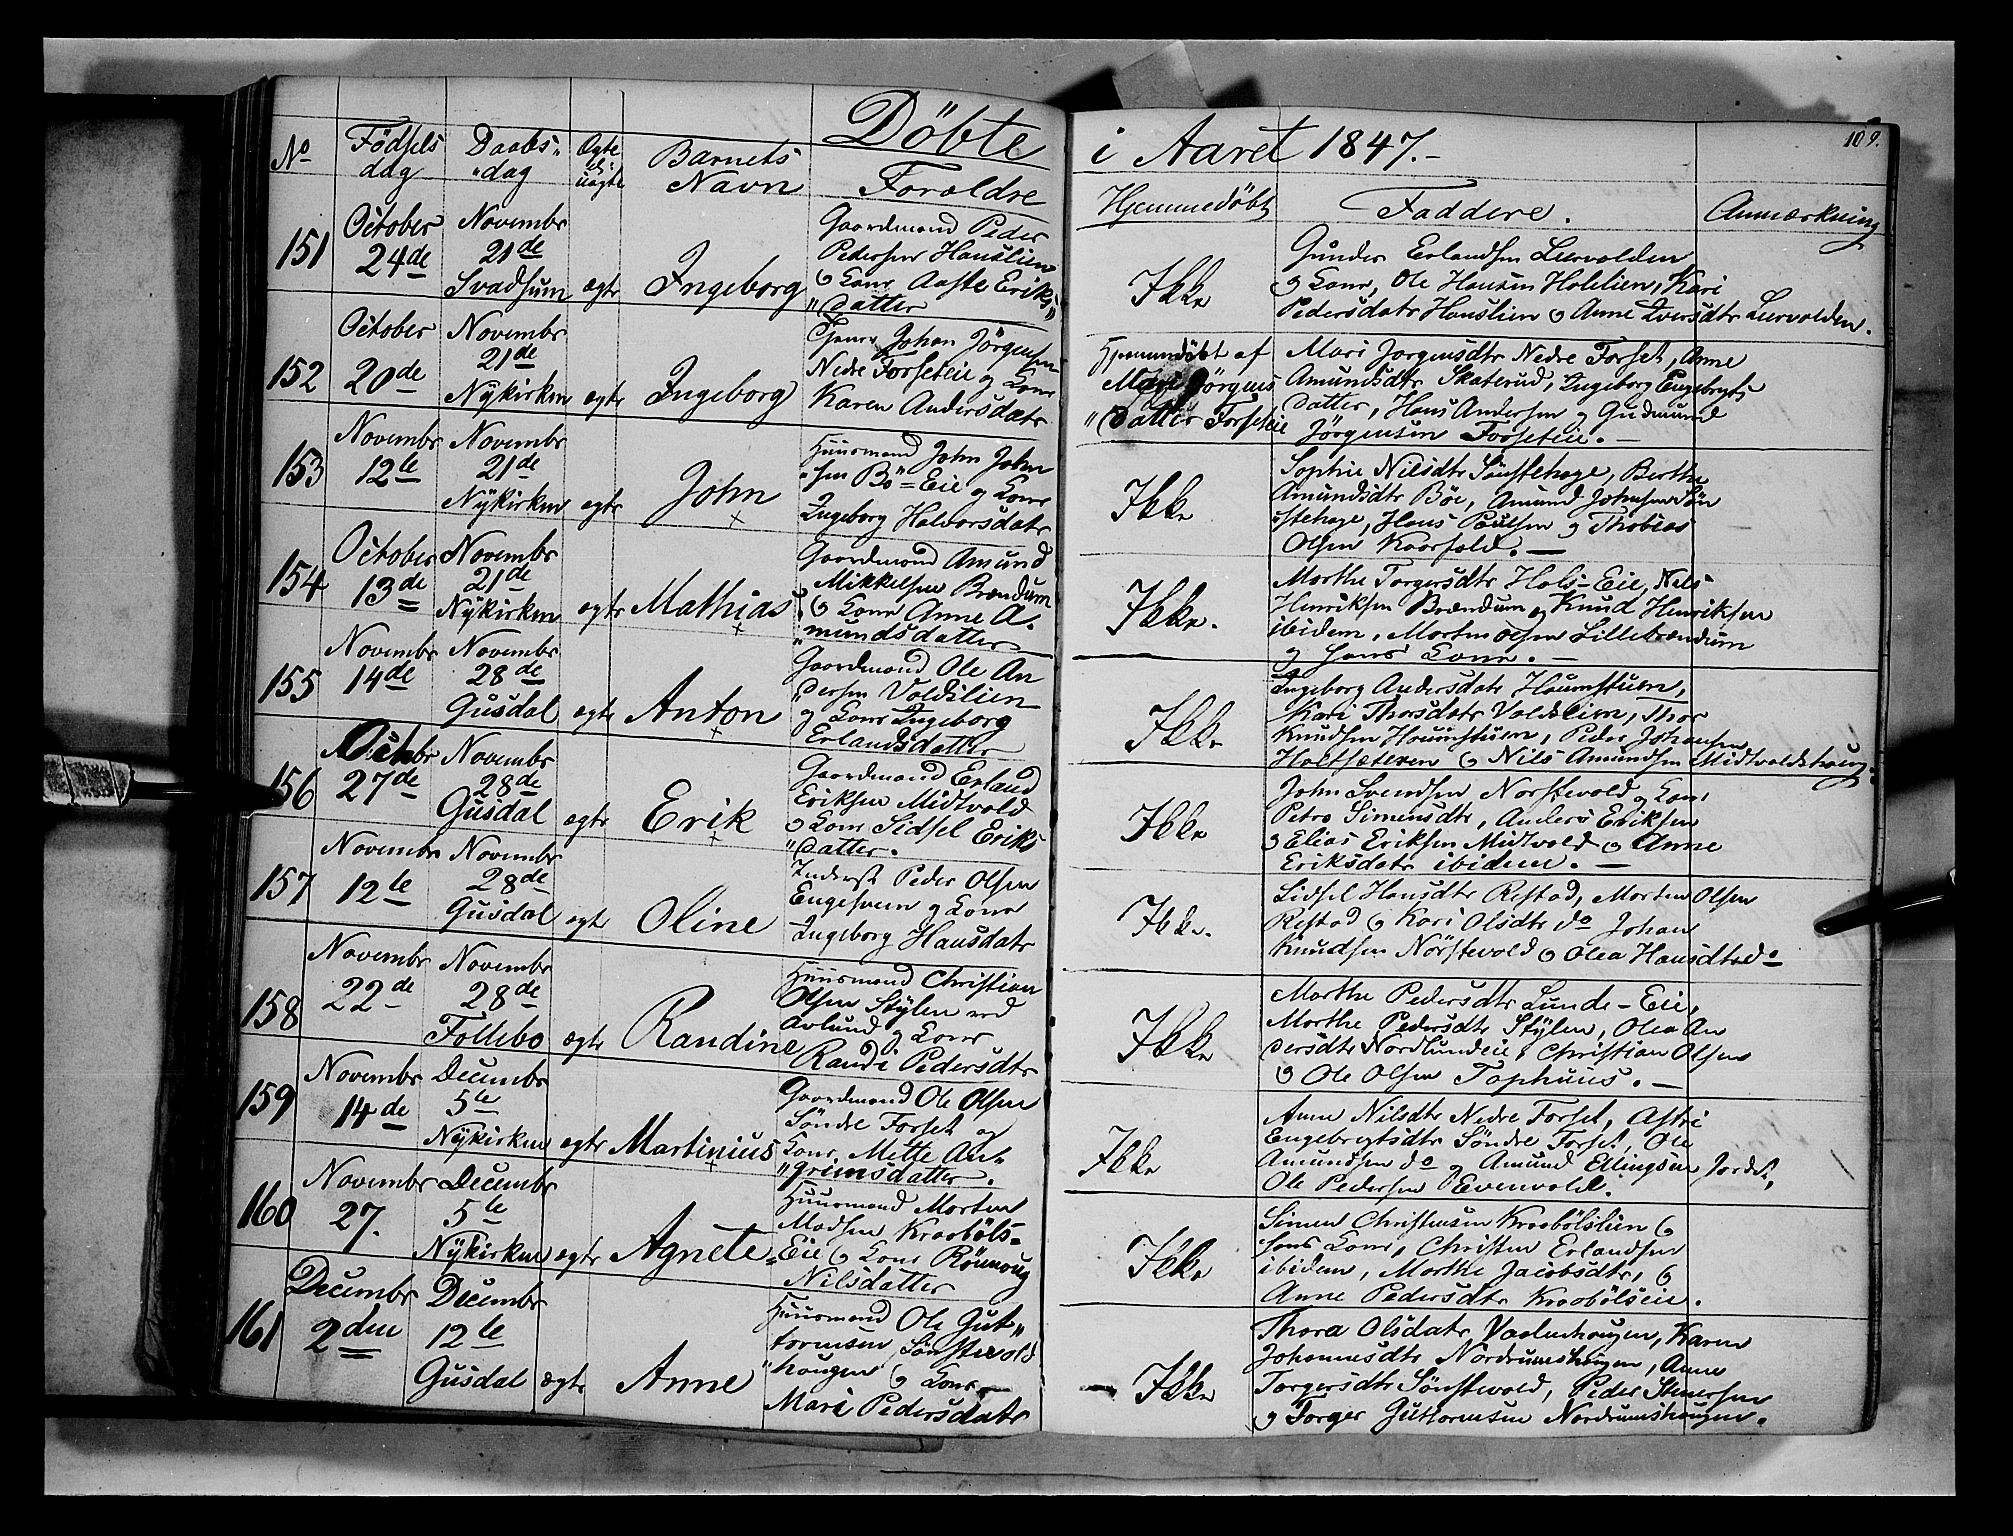 Döbte i Aaret 1847.-
109.
No Födsels dag Daabs- dag Ægte el: uægte Barnets Navn Forældre Hjemmedöbt Faddere. Anmærkning
151 October 24de Novembr 21de Svadsum ægte Ingeborg
Gaardmand Peder
Pedersen Hauslien
og Kone Aaste Eriks
datter
Ikke
Gunder Erlandsen Leervolden
og Kone, Ole Hansen Holelien, Kari
Pedersdatr Hauslien og Anne Iversdtr Leervolden.
152 October 20de Novembr 21de Nÿkirken ægte Ingeborg
Tjener Johan Jörgensen
Nedre Forseteie og Kone
Karen Andersdatr
Hjemmedöbt af
Mari Jörgens
datter Forseteie
Mari Jorgensdtr Nedre Forset, Anne
Amundsdtr Skaterud, Ingeborg Engebrgts
datter, Hans Andersen og Gudmund
Jörgensen Forseteie.-
153 Novembr 12te Novembr 21de Nÿkirken ægte John
Huusmand John John
sen Bö-Eie og Kone
Ingeborg Halvorsdatr
Ikke
Sophie Nilsdtr Sönstehage, Berthe
Amundsdtr Böe, Amund Johnsen Sön
stehage, Hans Poulsen og Thobias
Olsen Kaarfald.-
154 October 13de Novembr 21de Nÿkirken ægte Mathias
Gaardmand Amund
Mikkelsen Brændum
og Kone Anne A.
mundsdatter
Ikke.
Marthe Torgersdtr Hols-Eie, Nils
Henriksen Brændum og Knud Henriksen
ibidem, Morten Olsen Lillebrændum
og hans Kone.-
155 Novembr 14de Novembr 28de Gusdal ægte Anton
Gaardmand Ole An
dersen Voldslien
og Kone Ingeborg
Erlandsdatter
Ikke
Ingeborg Andersdatr Haumstuen,
Kari Thorsdatr Voldslien, Thor
Knudsen Haumstuen, Peder Johansen
Holtseteren og Nils Amundsen Midtvoldshaug.
156 Octbr 27de Novembr 28de Gusdal ægte Erik
Gaardmand Erland
Eriksen Midtvold
og Kone Sidsel Eriks
datter.
Ikke
John Svendsen Norstevold og Kone
Petro Simensdtr, Anders Eriksen
og Elias Eriksen Midtvold og Anne
Eriksdatr ibidem.-
157 Novembr 12te Novembr 28de Gusdal ægte Oline
Inderst Peder Olsen
Engesveen og Kone
Ingeborg Hansdatr
Ikke.
Sidsel Hansdtr Ristad, Morten Olsen
Ristad og Kari Olsdtr do Johan
Knudsen Nörstevold og Olea Hansdtr do
158 Novembr 22de Novembr 28de Follebo ægte Randine
Huusmand Christian
Olsen Stÿlen ved
Avlund og Kone
Randi Pedersdtr
Ikke
Marthe Pedersdtr Lunde-Eie,
Marthe Pedersdtr Stÿlen, Olea An
dersdtr Nordlundeie, Christian Olsen
og Ole Olsen Tophuus.-
159 Novembr 14de Decembr 5te Nÿkirken ægte Martinius
Gaardmand Ole Olsen
Söndre Forset og
Kone, Mette Arn
grimsdatter.
Ikke
Anne Nilsdtr Nedre Forset, Astri
Engebregtsdtr Söndre Forset, Ole
Amundsen do og Amund Ellingsen Jordet,
Ole Pedersen Evenvold.
160 Novembr 27. Decembr 5te Nÿkirken ægte Agnete
Huusmand Morten
Madsen Kraaböls-
Eie og Kone Rönnoug
Nilsdatter
Ikke
Simen Christensen Kraabölslien og
hans Kone, Christen Erlandsen
ibidem, Marthe Jacobsdtr, og
Anne Pedersdtr Kraabölseie.
161 Decembr 2den Decembr 12te Gusdal ægte Anne
Huusmand Ole Gut
tormsen Sönstevold
hougen og Kone
Mari Pedersdatr
Ikke
Thora Olsdatr Vaalenhougen, Karen
Johannesdtr Nordrumshougen, Anne
Torgersdtr Sönstevold, Peder Stenersen
og Torger Guttormsen Nordrumshougen.